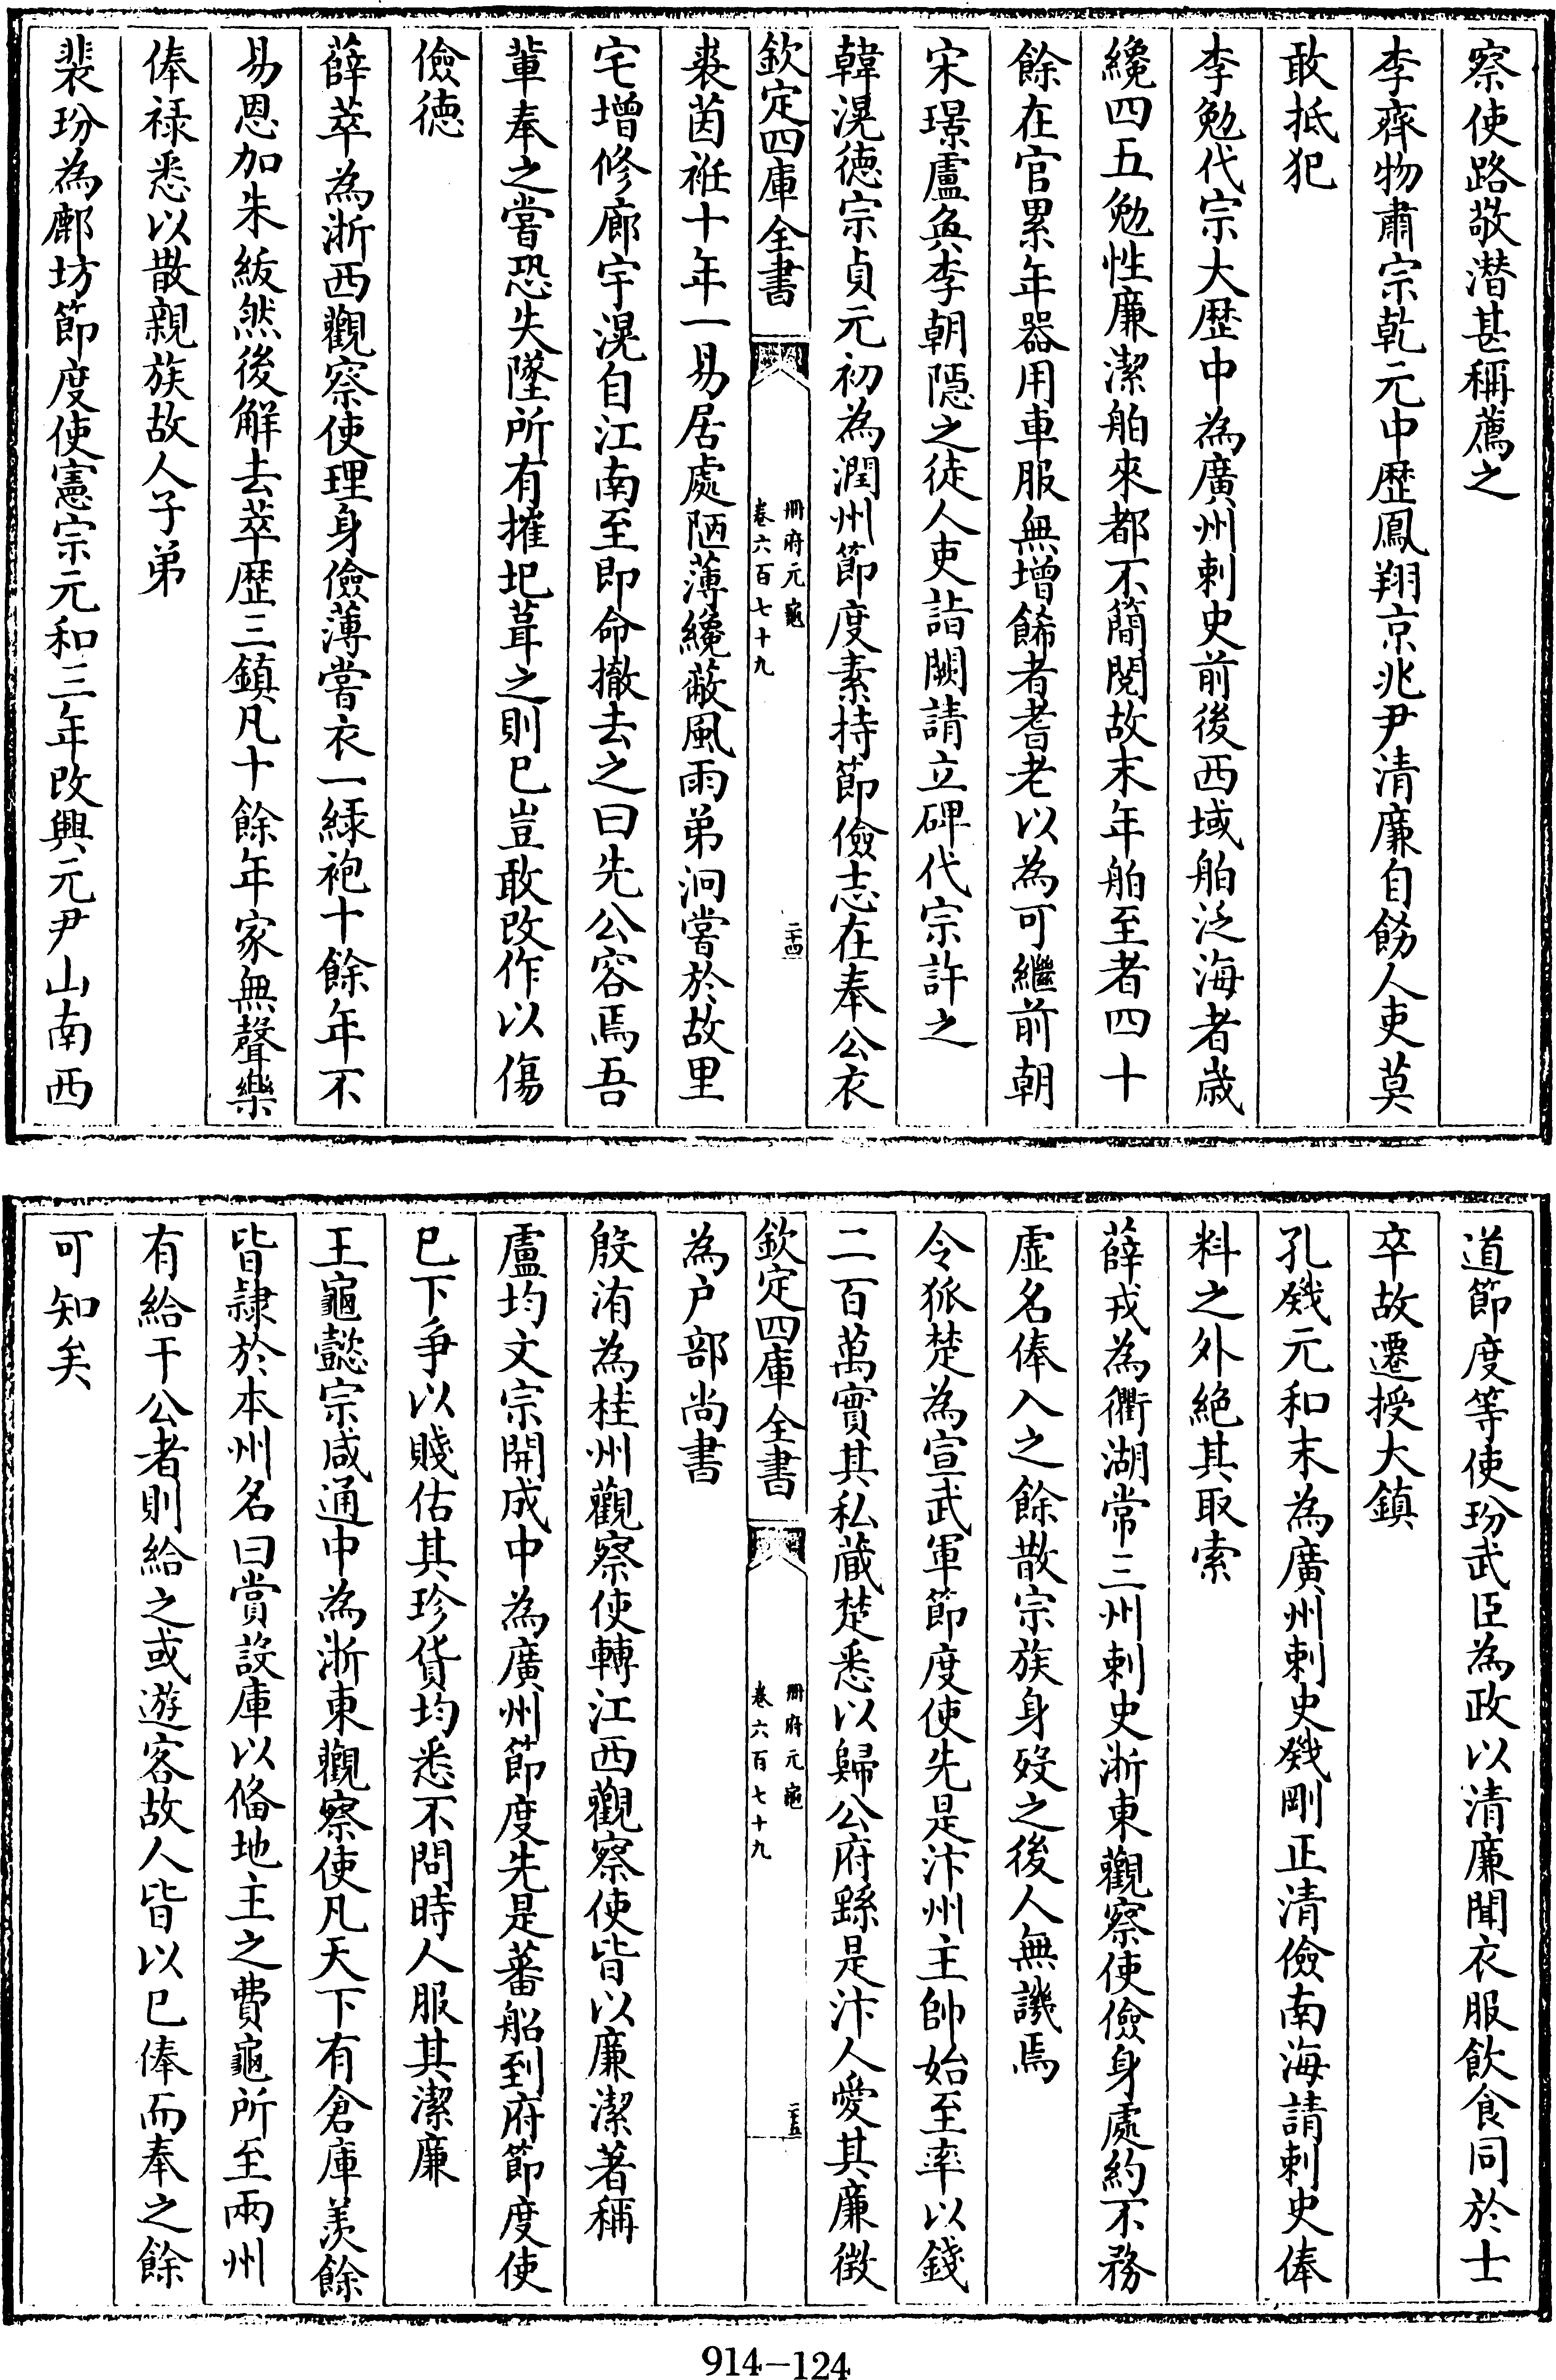 察使路敬潛甚稱薦之
李齊物肅宗乾元中歴鳳翔京兆尹清廉自飭人吏莫
敢抵犯
李勉代宗大歴中為廣州刺史前後西域舶泛海者歲
纔四五勉性廉潔舶來都不簡閱故末年舶至者四十
餘在官累年器用車服無增餙者耆老以為可繼前朝
宋璟盧奐李朝隱之徒人吏詣闕請立碑代宗許之
韓滉徳宗貞元初為潤州節度素持節儉志在奉公衣
欽定四庫全書
冊府元龜
卷六百七十九
二十四
裘茵袵十年一易居處陋薄纔蔽風雨弟洄嘗於故里
宅增修廊宇滉自江南至即命撤去之曰先公容焉吾
輩奉之嘗恐失墜所有摧圯葺之則已豈敢改作以傷
儉徳
薛萃為浙西觀察使理身儉薄嘗衣一緑袍十餘年不
易恩加朱紱然後解去萃歴三鎮凡十餘年家無聲樂
俸禄悉以散親族故人子弟
裴玢為鄜坊節度使憲宗元和三年改興元尹山南西
道節度等使玢武臣為政以清廉聞衣服飲食同於士
卒故遷授大鎮
孔戣元和末為廣州刺史戣剛正清儉南海請刺史俸
料之外絶其取索
薛戎為衢湖常三州刺史浙東觀察使儉身處約不務
虚名俸入之餘散宗族身殁之後人無譏焉
令狐楚為宣武軍節度使先是汴州主帥始至率以錢
二百萬實其私藏楚悉以歸公府繇是汴人愛其廉徴
欽定四庫全書
冊府元龜
卷六百七十九
二十五
為户部尚書
殷侑為桂州觀察使轉江西觀察使皆以廉潔著稱
盧均文宗開成中為廣州節度先是蕃船到府節度使
已下爭以賤估其珍貨均悉不問時人服其潔廉
王龜懿宗咸通中為浙東觀察使凡天下有倉庫羡餘
皆隷於本州名曰賞設庫以俻地主之費龜所至兩州
有給干公者則給之或遊客故人皆以已俸而奉之餘
可知矣
914-124